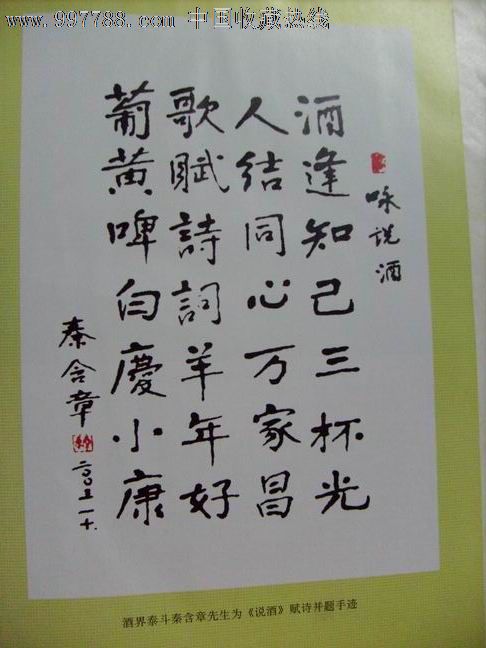 www.997788.com 中国收藏热线
咏说酒
酒逢知己三杯光
人结同心万家昌
歌賦詩詞羊年好
葡黄啤白慶小康
秦含章
二〇〇三一十.
酒界泰斗秦含章先生为《说酒》赋诗并题手迹